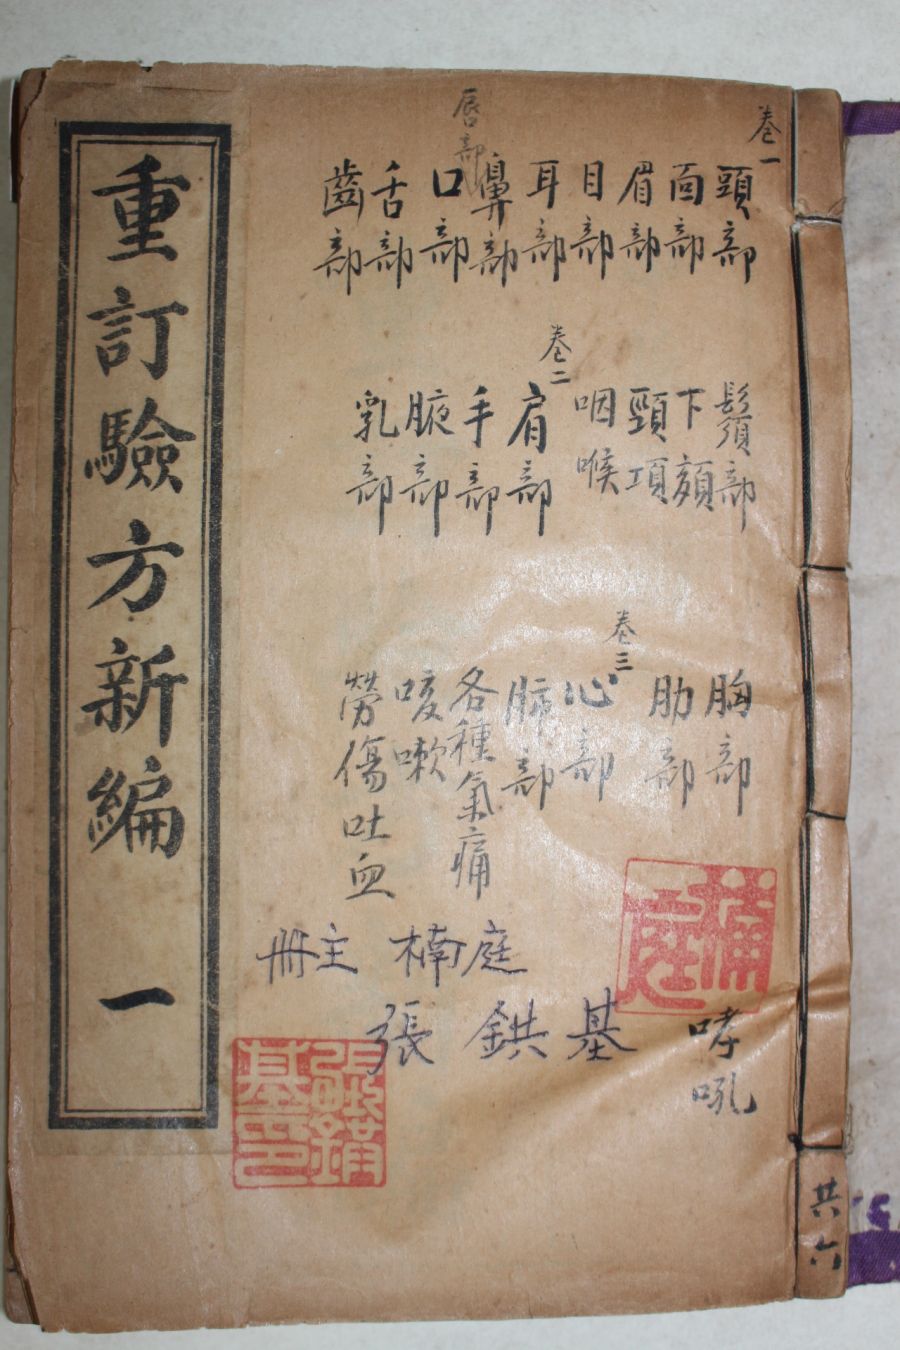 重訂驗方新編 一
卷一
頭部
面部
眉部
目部
耳部
鼻部
唇部
口部
舌部
齒部
鬚部
下頦
頸項
咽喉
卷二
肩部
手部
腋部
乳部
胸部
肋部
卷三
心部
肺部
各種氣痛
咳嗽
勞傷吐血
哮吼
冊主 楠庭
張鉷基
楠庭
張鉷基印
共六